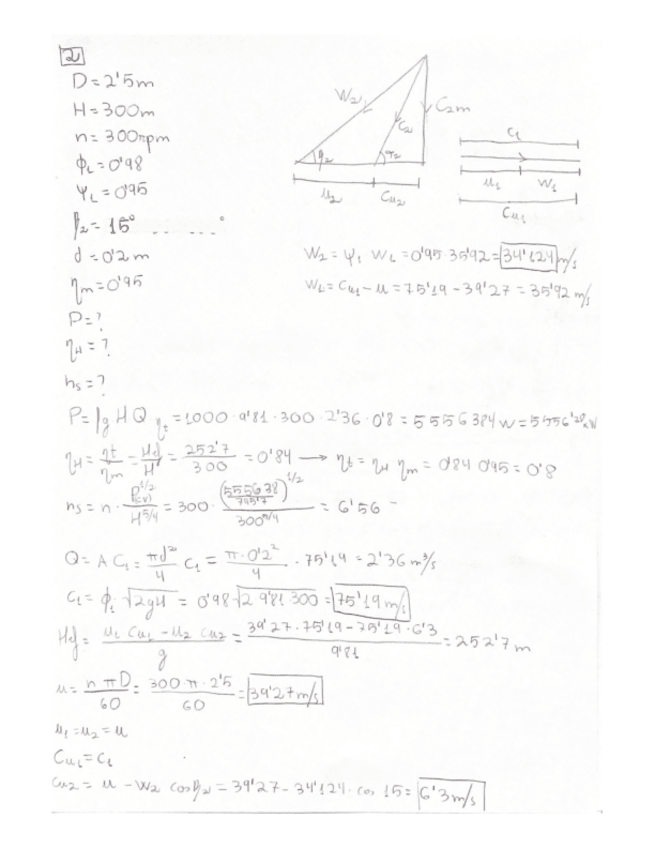 2
D = 2'5 m
H = 300 m
n = 300 rpm
ϕ₁ = 0'98
Ψ₁ = 0'95
β₂ = 15°
d = 0'2 m
ηm = 0'95
P = ?
ηH = ?
ns = ?
W₂
C₂
C₂m
β₂
α₂
u₂ Cu₂
c₁
u₁ W₁
Cu₁
W₂ = Ψ₁ W₁ = 0'95 · 35'92 = 34'124 m/s
W₁ = Cu₁ - u = 75'19 - 39'27 = 35'92 m/s
P = ρ g H Q ηt = 1000 · 9'81 · 300 · 2'36 · 0'8 = 5556384 W = 5556'38 kW
ηH = ηt/ηm = Hd/H = 252'7/300 = 0'84 → ηt = ηH ηm = 0'84 0'95 = 0'8
ns = n · P(CV)^1/2 / H^5/4 = 300 · (555638/745'7)^1/2 / 300^5/4 = 6'56
Q = A C₁ = πd²/4 C₁ = π · 0'2²/4 · 75'19 = 2'36 m³/s
C₁ = ϕ₁ √2gH = 0'98 √2 · 9'81 · 300 = 75'19 m/s
= u₁ Cu₁ - u₂ Cu₂ / g = 39'27 · 75'19 - 75'19 · 6'3 / 9'81 = 252'7 m
u = n π D / 60 = 300 · π · 2'5 / 60 = 39'27 m/s
u₁ = u₂ = u
Cu₁ = C₁
Cu₂ = u - W₂ cos β₂ = 39'27 - 34'124 · cos 15 = 6'3 m/s